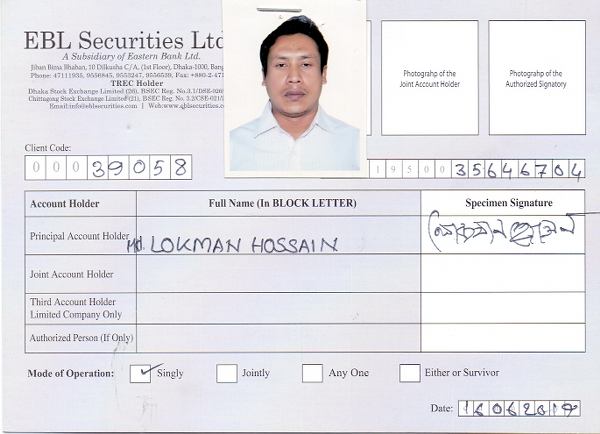 EBL Securities Ltd
A Subsidiary of Eastern Bank Ltd.
Jiban Bima Bhaban, 10 Dilkusha C/A, (1st Floor), Dhaka-1000, Ban
Phone: 47111935, 9556845, 9553247, 9556539, Fax: +880-2-471
TREC Holder
Dhaka Stock Exchange Limited (26), BSEC Reg. No.3.1/DSE-026
Chittagong Stock Exchange Limited (21), BSEC Reg. No. 3.2/CSE-021/
Email:info@eblsecurities.com | Web:www.eblsecurities.com
Photograhp of the
Joint Account Holder
Photograhp of the
Authorized Signatory
Client Code:
0 0 0 3 9 0 5 8
1 9 5 0 0 3 5 6 4 6 7 0 4
Account Holder Full Name (In BLOCK LETTER) Specimen Signature
Principal Account Holder Md. LOKMAN HOSSAIN
Joint Account Holder
Third Account Holder
Limited Company Only
Authorized Person (If Only)
Mode of Operation: Singly Jointly Any One Either or Survivor
Date: 16062017